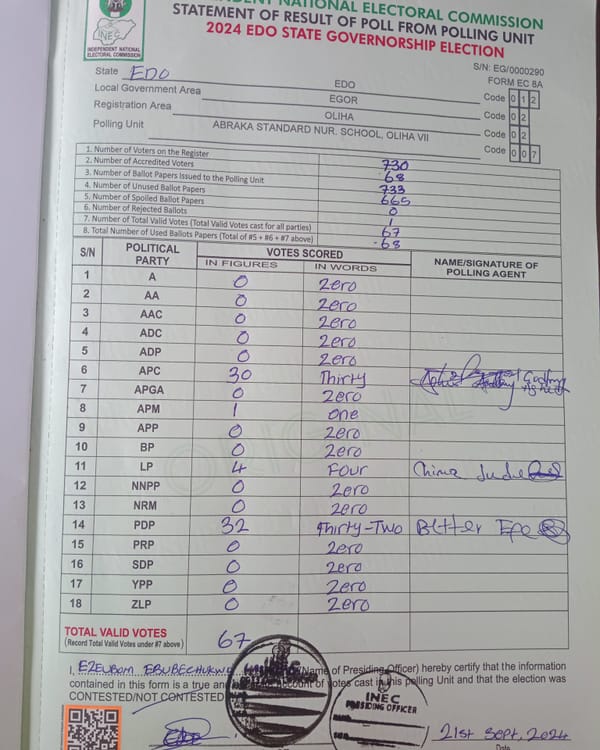 INDEPENDENT NATIONAL ELECTORAL COMMISSION
STATEMENT OF RESULT OF POLL FROM POLLING UNIT
2024 EDO STATE GOVERNORSHIP ELECTION
INEC
INDEPENDENT NATIONAL
ELECTORAL COMMISSION
S/N: EG/0000290
FORM EC 8A
State EDO EDO Code 012
Local Government Area EGOR Code 02
Registration Area OLIHA Code 02
Polling Unit ABRAKA STANDARD NUR. SCHOOL, OLIHA VII Code 007
1. Number of Voters on the Register 730
2. Number of Accredited Voters 68
3. Number of Ballot Papers Issued to the Polling Unit 733
4. Number of Unused Ballot Papers 665
5. Number of Spoiled Ballot Papers 0
6. Number of Rejected Ballots 1
7. Number of Total Valid Votes (Total Valid Votes cast for all parties) 67
8. Total Number of Used Ballots Papers (Total of #5 + #6 + #7 above) 68
S/N POLITICAL PARTY VOTES SCORED NAME/SIGNATURE OF POLLING AGENT
IN FIGURES IN WORDS
1 A 0 Zero
2 AA 0 Zero
3 AAC 0 Zero
4 ADC 0 Zero
5 ADP 0 Zero
6 APC 30 Thirty
7 APGA 0 Zero
8 APM 1 one
9 APP 0 Zero
10 BP 0 Zero
11 LP 4 FOUR
12 NNPP 0 Zero
13 NRM 0 Zero
14 PDP 32 Thirty-Two
15 PRP 0 Zero
16 SDP 0 Zero
17 YPP 0 Zero
18 ZLP 0 Zero
ORIGINAL
TOTAL VALID VOTES 67
(Record Total Valid Votes under #7 above)
I, EZEUBOM EBUBECHUKWU (Name of Presiding Officer) hereby certify that the information
contained in this form is a true and account of votes cast in this polling Unit and that the election was
CONTESTED/NOT CONTESTED
INEC
PRESIDING OFFICER
21st Sept, 2024
Date